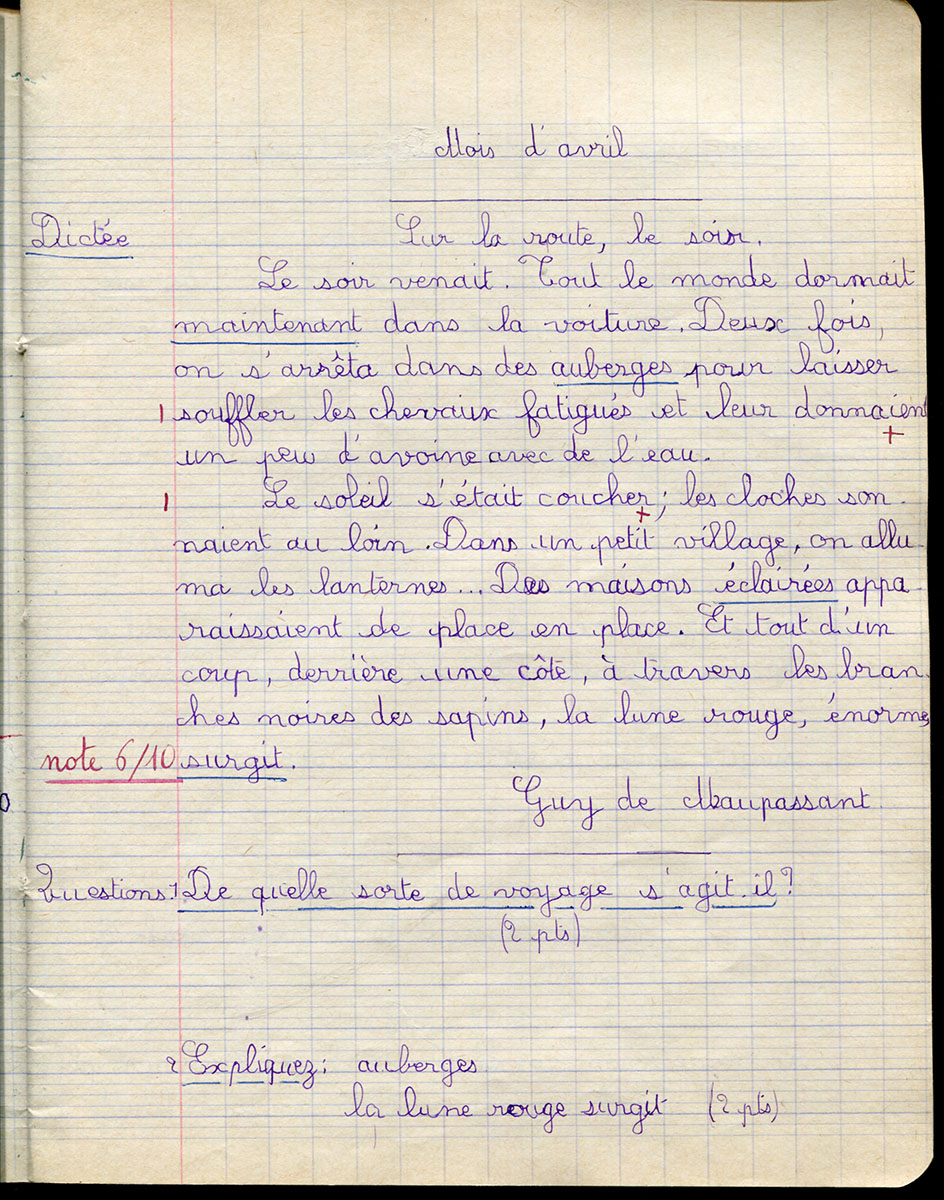 Mois d'avril
Dictée Sur la route, le soir.
Le soir venait. Tout le monde dormait
maintenant dans la voiture. Deux fois,
on s'arrêta dans des auberges pour laisser
1 souffler les chevaux fatigués et leur donnaient
+
un peu d'avoine avec de l'eau.
1 Le soleil s'était coucher; les cloches son-
+
naient au loin. Dans un petit village, on allu-
ma les lanternes... Des maisons éclairées appa-
raissaient de place en place. Et tout d'un
coup, derrière une côte, à travers les bran-
ches noires des sapins, la lune rouge, énorme,
note 6/10 surgit.
Guy de Maupassant
Questions: 1 De quelle sorte de voyage s'agit-il?
(2 pts)
2 Expliquez: auberges
la lune rouge surgit (2 pts)